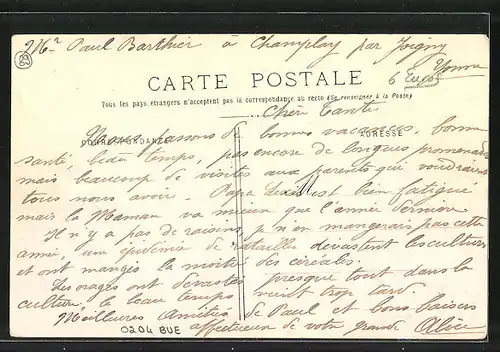 Mr Paul Barthier à Champlay par Joigny
Yonne
CARTE POSTALE
Tous les pays étrangers n'acceptent pas la correspondance au recto (Se renseigner à la Poste)
CORRESPONDANCE
ADRESSE
Chère Tante
Nous passons de bonnes vacances, bonne
santé, beau temps, pas encore de longues promenades
mais beaucoup de visites aux parents qui voudraient
tous nous avoir. Papa est bien fatigué
mais la Maman va mieux que l'année dernière
Il n'y a pas de raisins, je n'en mangerais pas cette
année, une épidémie de dévastent les cultures
et ont mangés la moitié des céréales.
Les orages ont dévastés presque tout dans la
culture, le beau temps vient trop tard.
Meilleures Amitiés de Paul et bons baisers
affectueux de votre grande Alice
0204 BUE